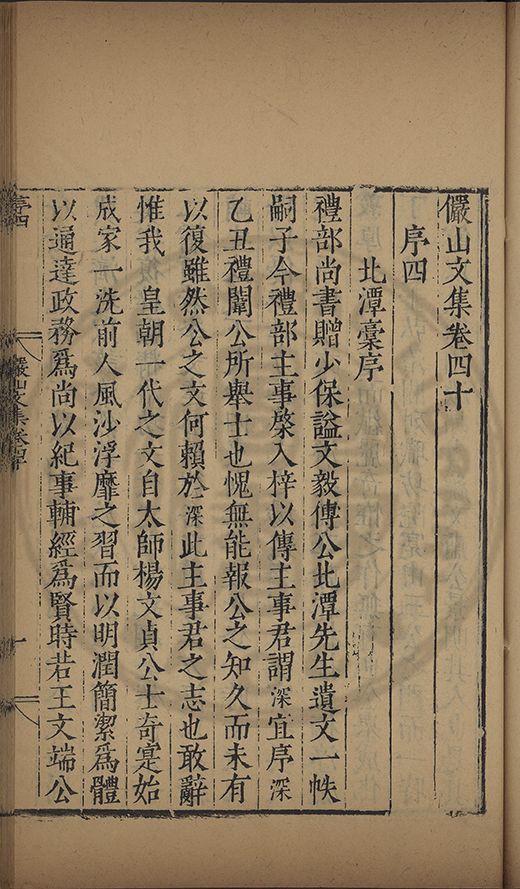 儼山文集卷四十
序四
北潭稾序
禮部尚書贈少保謚文毅傅公北潭先生遺文一帙
嗣子今禮部主事檗入梓以傳主事君謂深宜序深
乙丑禮闈公所舉士也愧無能報公之知久而未有
以復雖然公之文何賴於深此主事君之志也敢辭
惟我 皇朝一代之文自太師楊文貞公士奇寔始
成家一洗前人風沙浮靡之習而以明潤簡潔爲體
以通達政務爲尚以紀事輔經爲賢時若王文端公
序四
儼山文集卷四十
一